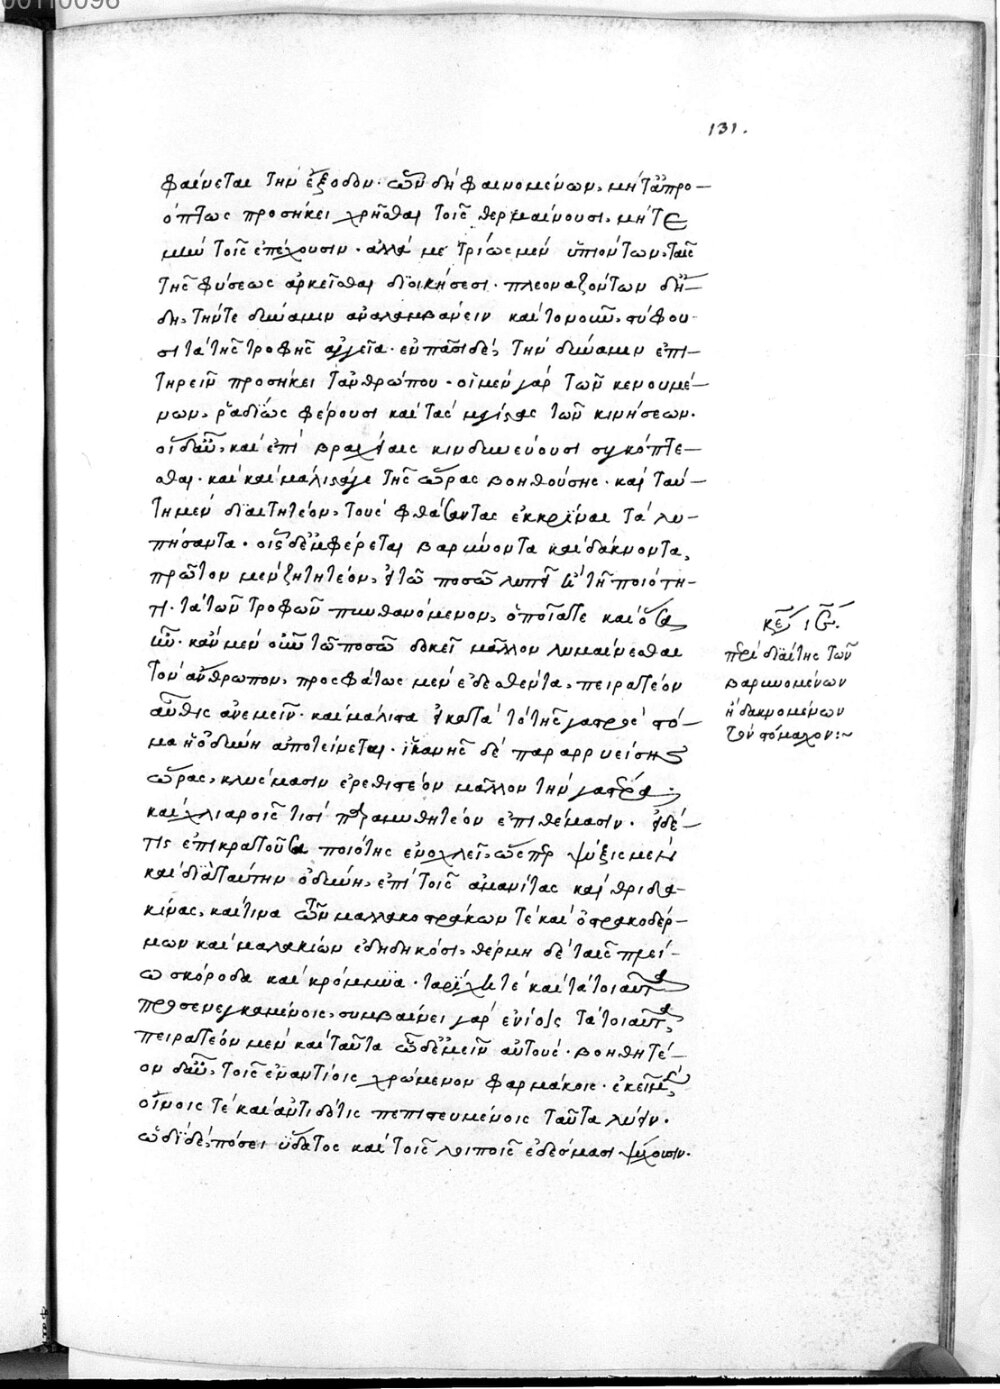 131.
φαίνεται τὴν ἔξοδον. ὧν δὴ φαινομένων, μήτ' ἀπρο-
όπτως προσήκει χρῆσθαι τοῖς θερμαίνουσι, μήτε
μὴν τοῖς ἐπέχουσιν. ἀλλὰ μετρίως μὲν ὑπιόντων, ταῖς
τῆς φύσεως ἀρκεῖσθαι διοικήσεσι. πλεοναζόντων δ' ἤ-
δη, τήντε δύναμιν ἀναλαμβάνειν καὶ τονοῦν,
τὰ τῆς τροφῆς ἀγγεῖα. ἐν πᾶσι δὲ, τὴν δύναμιν ἐπι-
τηρεῖν προσήκει τἀνθρώπου. οἱ μὲν γὰρ τῶν κενουμέ-
νων, ῥαδίως φέρουσι καὶ τὰς μεγίστας τῶν κινήσεων.
οἱ δ' αὖ, καὶ ἐπὶ βραχείαις κινδυνεύουσι συγκόπτε-
σθαι. καὶ μάλιστά γε τῆς ὥρας βοηθούσης. καὶ ταύ-
τῃ μὲν διαιτητέον, τοὺς φθάσαντας ἐκκρῖναι τὰ λυ-
πήσαντα. οἷς δ' ἐμφέρεται βαρύνοντα καὶ δάκνοντα,
πρῶτον μὲν ζητητέον, εἰ τῷ ποσῷ λυπεῖ ἢ τῇ ποιότη-
τι. τὰ τῶν τροφῶν πυνθανόμενον, ὁποῖάτε καὶ ὅσα
ἦν. κἂν μὲν οὖν τῷ ποσῷ δοκεῖ μᾶλλον λυμαίνεσθαι
τὸν ἄνθρωπον, προσφάτως μὲν ἐδεσθέντα, πειρατέον
αὖθις ἀνεμεῖν. καὶ μάλιστα εἰ κατὰ τὸ τῆς γαστρὸς στό-
μα ἡ ὀδύνη ἀποτείνεται. ἱκανῆς δὲ παραρρυείσης
ὥρας, κλύσμασιν ἐρεθιστέον μᾶλλον τὴν γαστέρα.
καὶ χλιαροῖς τισὶ παραμυθητέον ἐπιθέμασιν. εἰ δέ
τις ἐπικρατοῦσα ποιότης ἐνοχλεῖ, ὥσπερ ψύξις μὲν
καὶ διὰ ταύτην ὀδύνη, ἐπὶ τοῖς ἀμανίτας καὶ θριδα-
κίνας, καὶ τινα τῶν μαλακοστράκων τὲ καὶ ὀστρακοδέρ-
μων καὶ μαλακίων ἐδηδοκόσι, θέρμη δὲ ταῖς πλεί-
ω σκόροδα καὶ κρόμμυα. ταρίχη τὲ καὶ τὰ τοιαῦτα
προσενεγκαμένοις, συμβαίνει γὰρ ἐνίοις τὰ τοιαῦτα,
πειρατέον μὲν καὶ ταῦτα ὧδ' ἐμεῖν αὐτούς. βοηθητέ-
ον δ' αὖ, τοῖς ἐναντίοις χρώμενον φαρμάκοις. ἐκείνους
οἴνοις τὲ καὶ ἀντιδότοις πεπιστευμένοις ταῦτα λύειν.
ὡδὶ δὲ, πόσει ὕδατος καὶ τοῖς λοιποῖς ἐδέσμασι ψύχουσιν.
περὶ διαίτης τῶν
βαρυνομένων
ἢ δακνομένων
τὸν στόμαχον:~